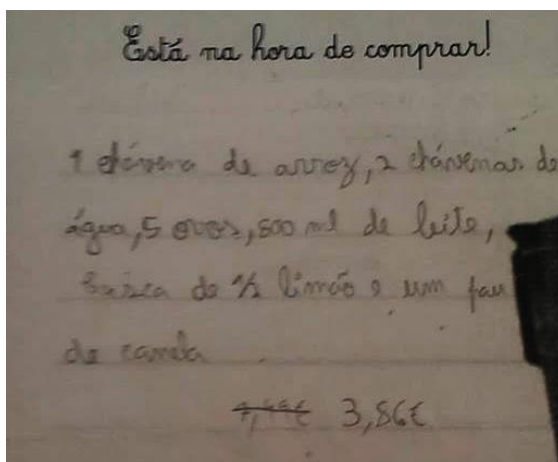 Está na hora de comprar!
1 chávena de arroz, 2 chávenas de
água, 5 ovos, 500 ml de leite,
de ½ limão e um pau
de canela
3,86€